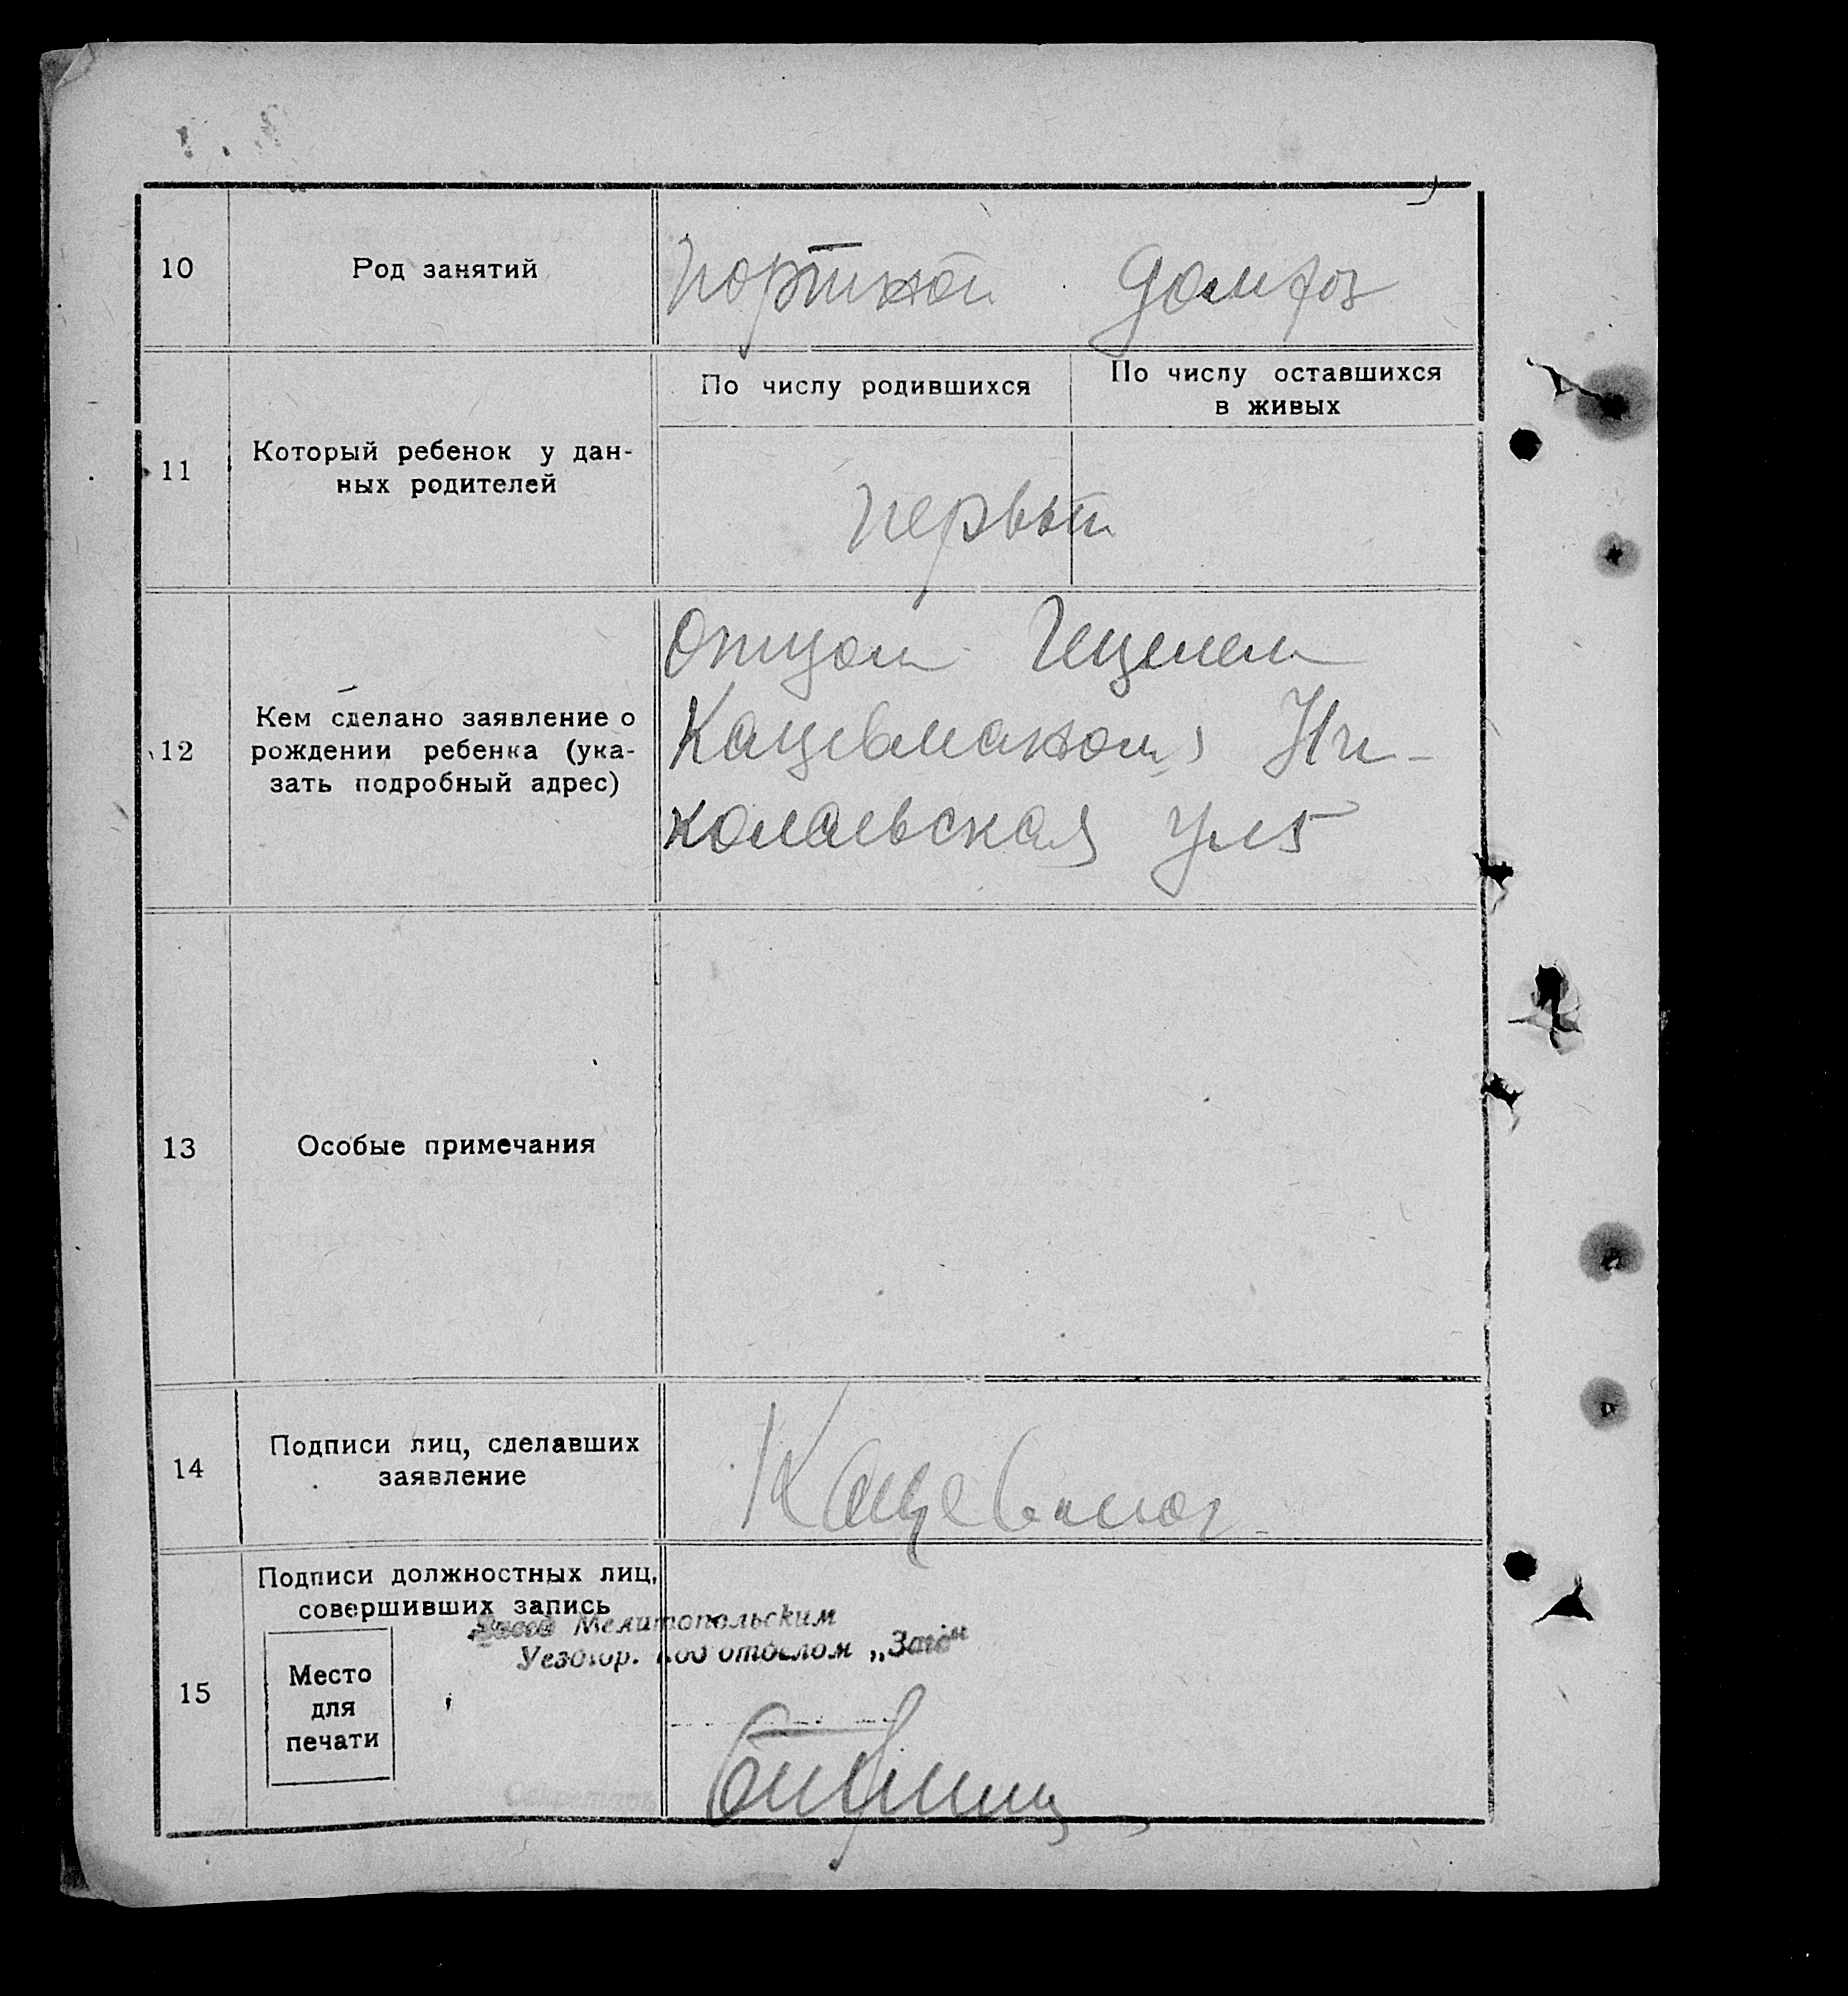 10
Род занятий
портной домхоз
11
Который ребенок у дан-
ных родителей
По числу родившихся
По числу оставшихся
в живых
первый
12
Кем сделано заявление о
рождении ребенка (ука-
зать подробный адрес)
Отцом Гецелем
Кацевманом, Ни-
колаевская ул 5
13
Особые примечания
14
Подписи лиц, сделавших
заявление
Кацевман
15
Подписи должностных лиц,
совершивших запись
Место
для
печати
Завед Мелитопольским
Уездгор. подотделом „Загс"
Секретарь